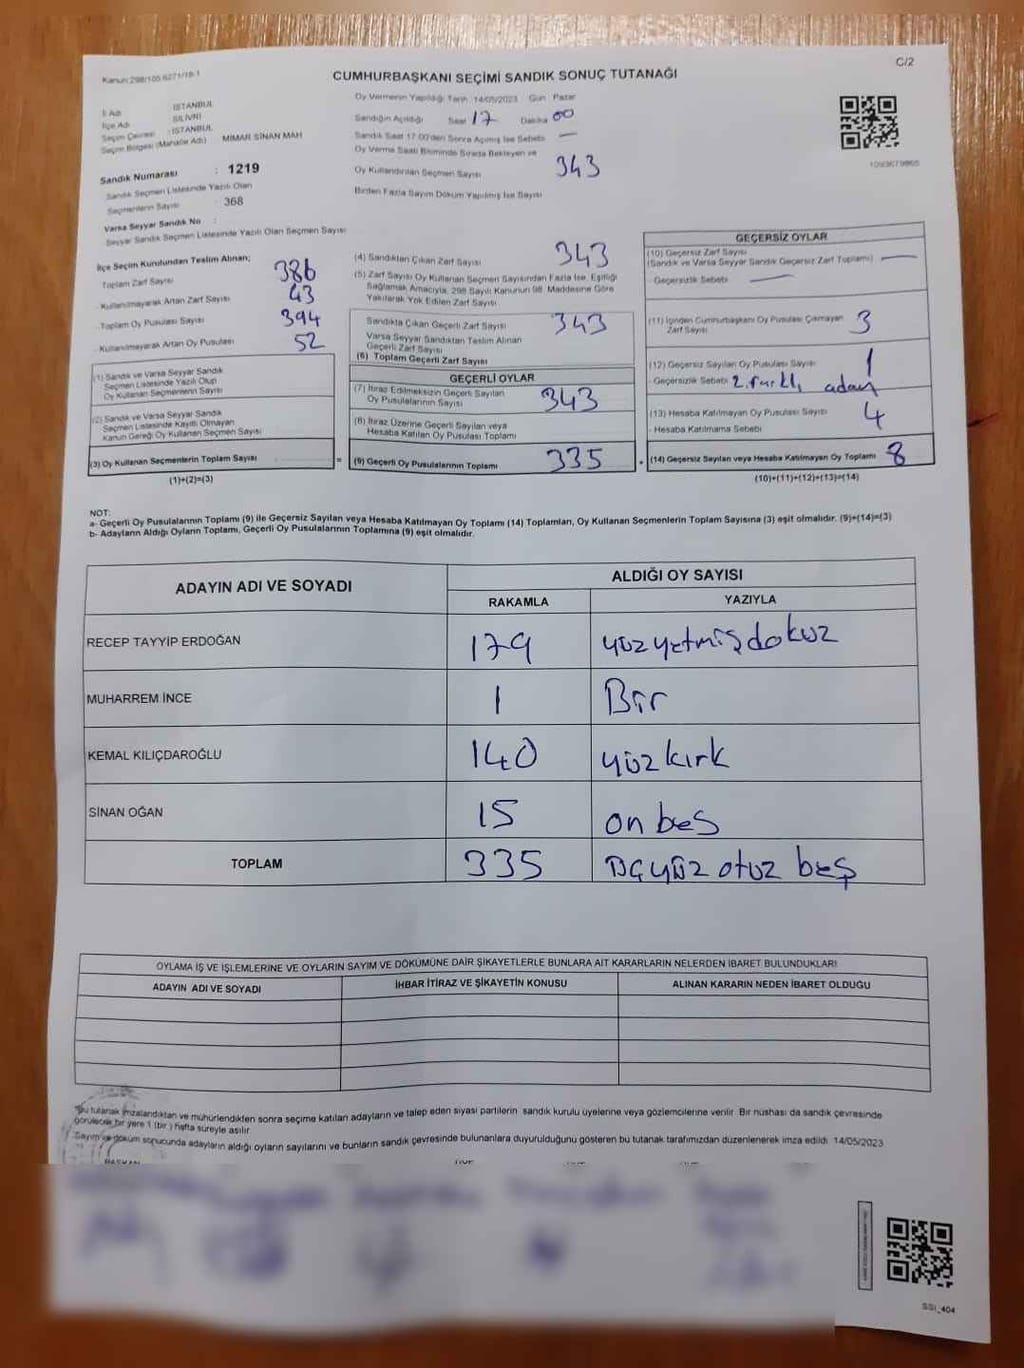 Kanun:298/105 6271/18-1
C/2
CUMHURBAŞKANI SEÇİMİ SANDIK SONUÇ TUTANAĞI
İl Adı : İSTANBUL
İlçe Adı : SİLİVRİ
Seçim Çevresi : İSTANBUL
Seçim Bölgesi (Mahalle Adı) MİMAR SİNAN MAH
Sandık Numarası : 1219
Sandık Seçmen Listesinde Yazılı Olan
Seçmenlerin Sayısı : 368
Varsa Seyyar Sandık No :
Seyyar Sandık Seçmen Listesinde Yazılı Olan Seçmen Sayısı
Oy Vermenin Yapıldığı Tarih 14/05/2023 Gün Pazar
Sandığın Açıldığı Saat 17 Dakika 00
Sandık Saat 17:00'den Sonra Açılmış İse Sebebi —
Oy Verme Saati Bitiminde Sırada Bekleyen ve
Oy Kullandırılan Seçmen Sayısı 343
Birden Fazla Sayım Döküm Yapılmış İse Sayısı
1093679865
İlçe Seçim Kurulundan Teslim Alınan;
Toplam Zarf Sayısı 386
Kullanılmayarak Artan Zarf Sayısı 43
Toplam Oy Pusulası Sayısı 394
Kullanılmayarak Artan Oy Pusulası 52
(1) Sandık ve Varsa Seyyar Sandık
Seçmen Listesinde Yazılı Olup
Oy Kullanan Seçmenlerin Sayısı
(2) Sandık ve Varsa Seyyar Sandık
Seçmen Listesinde Kayıtlı Olmayan
Kanun Gereği Oy Kullanan Seçmen Sayısı
(3) Oy Kullanan Seçmenlerin Toplam Sayısı =
(1)+(2)=(3)
(4) Sandıktan Çıkan Zarf Sayısı 343
(5) Zarf Sayısı Oy Kullanan Seçmen Sayısından Fazla İse, Eşitliği
Sağlamak Amacıyla, 298 Sayılı Kanunun 98. Maddesine Göre
Yakılarak Yok Edilen Zarf Sayısı
Sandıkta Çıkan Geçerli Zarf Sayısı 343
Varsa Seyyar Sandıktan Teslim Alınan
Geçerli Zarf Sayısı
(6) Toplam Geçerli Zarf Sayısı
GEÇERLİ OYLAR
(7) İtiraz Edilmeksizin Geçerli Sayılan
Oy Pusulalarının Sayısı 343
(8) İtiraz Üzerine Geçerli Sayılan veya
Hesaba Katılan Oy Pusulası Toplamı
(9) Geçerli Oy Pusulalarının Toplamı 335 +
GEÇERSİZ OYLAR
(10) Geçersiz Zarf Sayısı
(Sandık ve Varsa Seyyar Sandık Geçersiz Zarf Toplamı) —
Geçersizlik Sebebi —
(11) İçinden Cumhurbaşkanı Oy Pusulası Çıkmayan
Zarf Sayısı 3
(12) Geçersiz Sayılan Oy Pusulası Sayısı 1
Geçersizlik Sebebi 2. farklı aday
(13) Hesaba Katılmayan Oy Pusulası Sayısı 4
Hesaba Katılmama Sebebi
(14) Geçersiz Sayılan veya Hesaba Katılmayan Oy Toplamı 8
(10)+(11)+(12)+(13)=(14)
NOT:
a- Geçerli Oy Pusulalarının Toplamı (9) ile Geçersiz Sayılan veya Hesaba Katılmayan Oy Toplamı (14) Toplamları, Oy Kullanan Seçmenlerin Toplam Sayısına (3) eşit olmalıdır. (9)+(14)=(3)
b- Adayların Aldığı Oyların Toplamı, Geçerli Oy Pusulalarının Toplamına (9) eşit olmalıdır.
ADAYIN ADI VE SOYADI ALDIĞI OY SAYISI
RAKAMLA YAZIYLA
RECEP TAYYİP ERDOĞAN 179 yüz yetmiş dokuz
MUHARREM İNCE 1 Bir
KEMAL KILIÇDAROĞLU 140 yüz kırk
SİNAN OĞAN 15 on beş
TOPLAM 335 üç yüz otuz beş
OYLAMA İŞ VE İŞLEMLERİNE VE OYLARIN SAYIM VE DÖKÜMÜNE DAİR ŞİKAYETLERLE BUNLARA AİT KARARLARIN NELERDEN İBARET BULUNDUKLARI
ADAYIN ADI VE SOYADI İHBAR İTİRAZ VE ŞİKAYETİN KONUSU ALINAN KARARIN NEDEN İBARET OLDUĞU
Bu tutanak imzalandıktan ve mühürlendikten sonra seçime katılan adayların ve talep eden siyasi partilerin sandık kurulu üyelerine veya gözlemcilerine verilir. Bir nüshası da sandık çevresinde
görülecek bir yere 1 (bir ) hafta süreyle asılır.
Sayım ve döküm sonucunda adayların aldığı oyların sayılarını ve bunların sandık çevresinde bulunanlara duyurulduğunu gösteren bu tutanak tarafımızdan düzenlenerek imza edildi. 14/05/2023
BAŞKAN
SSI_404